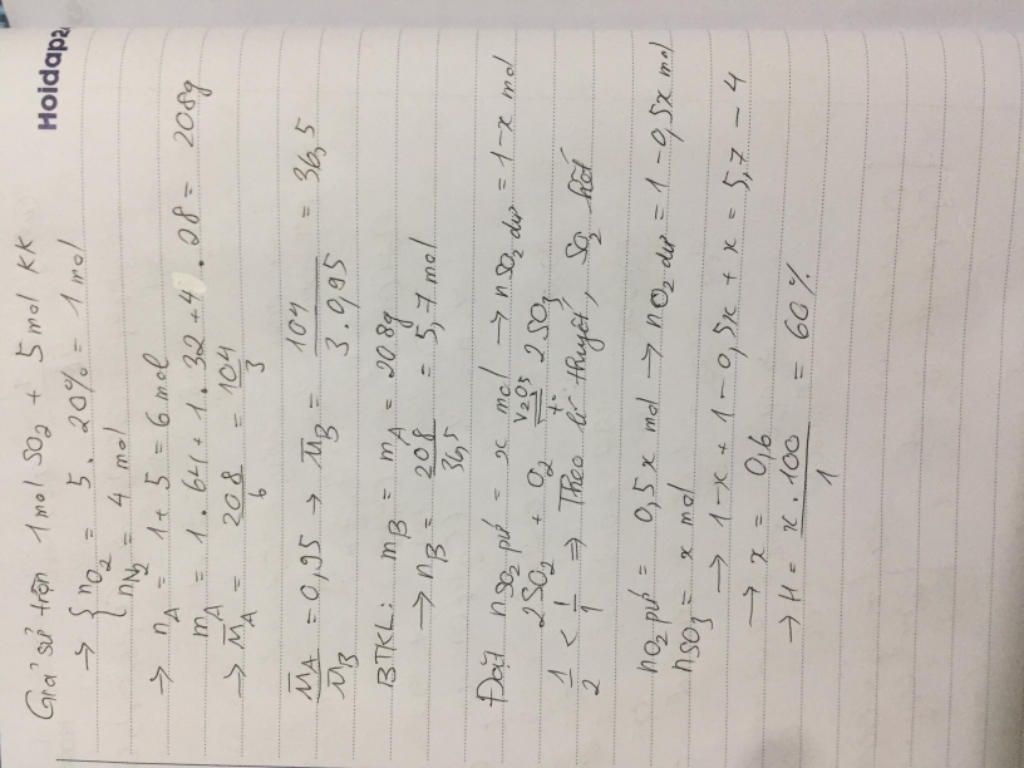 Hoidap2
Giả sử trộn 1 mol SO2 + 5 mol KK
→ { nO2 = 5 . 20% = 1 mol
nN2 = 4 mol
→ nA = 1 + 5 = 6 mol
mA = 1 . 64 + 1 . 32 + 4 . 28 = 208g
→ M̄A = 208/6 = 104/3
M̄A/M̄B = 0,95 → M̄B = 104/(3 . 0,95) = 36,5
BTKL: mB = mA = 208g
→ nB = 208/36,5 = 5,7 mol
Đặt nSO2 pứ = x mol → nSO2 dư = 1 - x mol
2SO2 + O2 ⇌ (V2O5, t°) 2SO3
1/2 < 1/1 ⇒ Theo lí thuyết, SO2 hết
nO2 pứ = 0,5x mol → nO2 dư = 1 - 0,5x mol
nSO3 = x mol
→ 1 - x + 1 - 0,5x + x = 5,7 - 4
→ x = 0,6
→ H = x . 100/1 = 60%